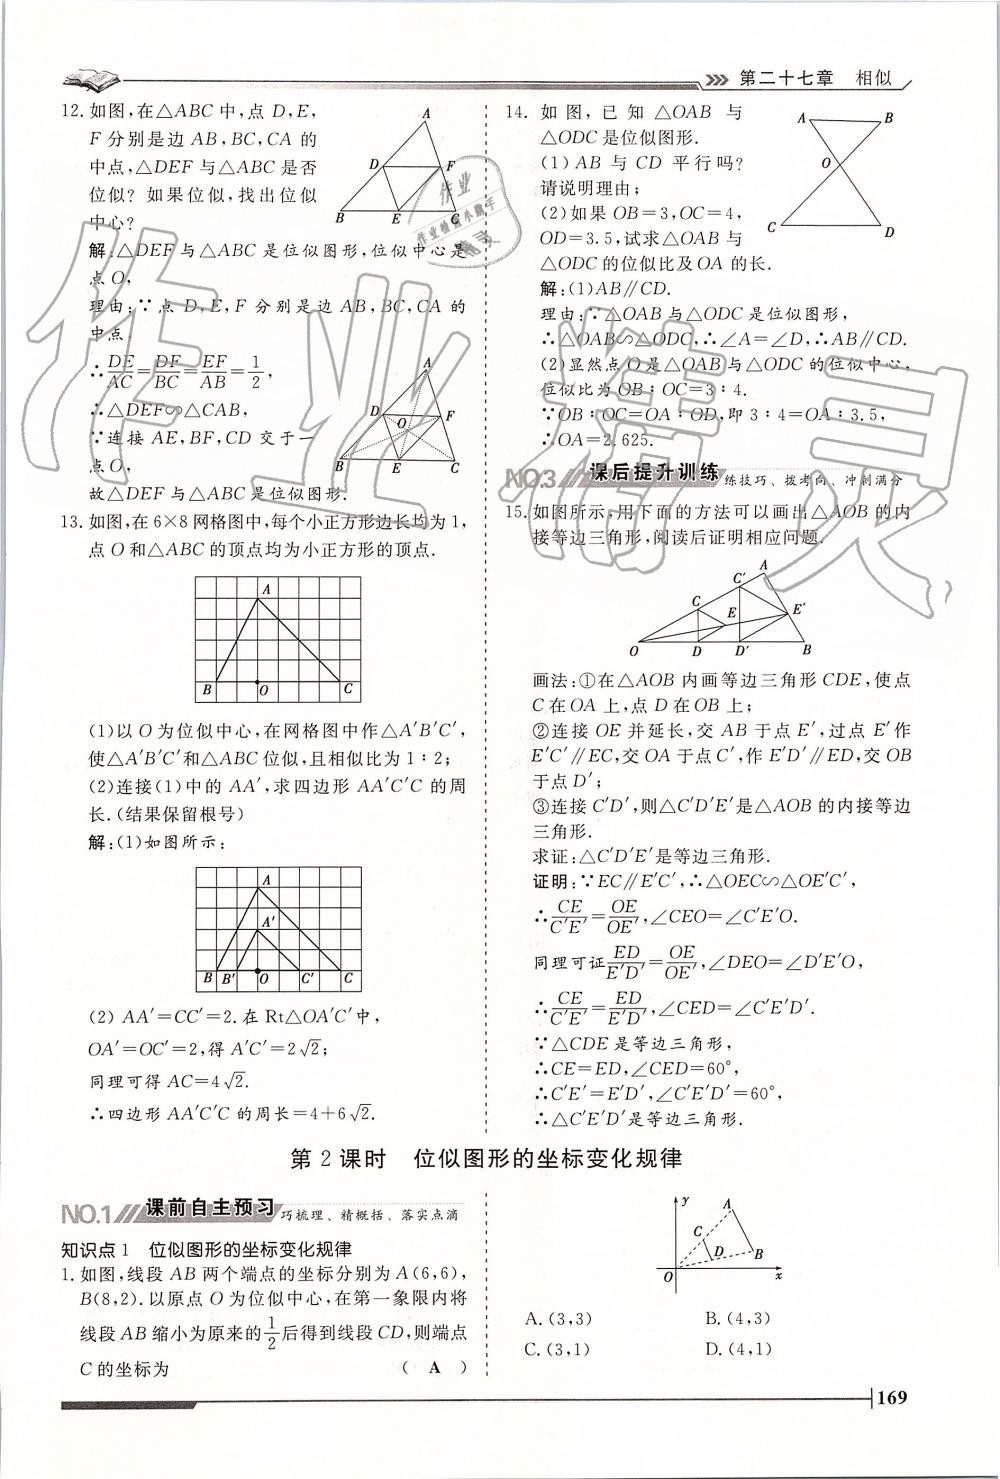 第二十七章 相似
12. 如图,在△ABC 中,点 D,E,
F 分别是边 AB,BC,CA 的
中点,△DEF 与△ABC 是否
位似? 如果位似,找出位似
中心?
A
D
F
B
E
C
解:△DEF 与△ABC 是位似图形,位似中心是
点 O,
理由:∵点 D,E,F 分别是边 AB,BC,CA 的
中点,
∴DE/AC=DF/BC=EF/AB=1/2,
∴△DEF∽△CAB,
∵连接 AE,BF,CD 交于一
点 O,
A
D
O
F
B
E
C
故△DEF 与△ABC 是位似图形.
13. 如图,在 6×8 网格图中,每个小正方形边长均为 1,
点 O 和△ABC 的顶点均为小正方形的顶点.
A
B
O
C
(1)以 O 为位似中心,在网格图中作△A′B′C′,
使△A′B′C′和△ABC 位似,且相似比为 1∶2;
(2)连接(1)中的 AA′,求四边形 AA′C′C 的周
长.(结果保留根号)
解:(1)如图所示:
A
A′
B B′ O C′ C
(2) AA′=CC′=2.在 Rt△OA′C′中,
OA′=OC′=2,得 A′C′=2√2;
同理可得 AC=4√2.
∴四边形 AA′C′C 的周长=4+6√2.
14. 如图, 已知△OAB 与
△ODC 是位似图形.
(1) AB 与 CD 平行吗?
请说明理由;
(2)如果 OB=3,OC=4,
OD=3.5,试求△OAB 与
△ODC 的位似比及 OA 的长.
A
B
O
C
D
解:(1)AB∥CD.
理由:∵△OAB 与△ODC 是位似图形,
∴△OAB∽△ODC,∴∠A=∠D,∴AB∥CD.
(2)显然点 O 是△OAB 与△ODC 的位似中心,
位似比为 OB∶OC=3∶4.
∵OB∶OC=OA∶OD,即 3∶4=OA∶3.5,
∴OA=2.625.
NO.3 课后提升训练 练技巧、拨考向、冲刺满分
15. 如图所示,用下面的方法可以画出△AOB 的内
接等边三角形,阅读后证明相应问题.
A
C′
C
E
E′
O
D
D′
B
画法:①在△AOB 内画等边三角形 CDE,使点
C 在 OA 上,点 D 在 OB 上;
②连接 OE 并延长,交 AB 于点 E′,过点 E′作
E′C′∥EC,交 OA 于点 C′,作 E′D′∥ED,交 OB
于点 D′;
③连接 C′D′,则△C′D′E′是△AOB 的内接等边
三角形.
求证:△C′D′E′是等边三角形.
证明:∵EC∥E′C′,∴△OEC∽△OE′C′,
∴CE/C′E′=OE/OE′,∠CEO=∠C′E′O.
同理可证ED/E′D′=OE/OE′,∠DEO=∠D′E′O,
∴CE/C′E′=ED/E′D′,∠CED=∠C′E′D′.
∵△CDE 是等边三角形,
∴CE=ED,∠CED=60°,
∴C′E′=E′D′,∠C′E′D′=60°,
∴△C′E′D′是等边三角形.
第 2 课时 位似图形的坐标变化规律
NO.1 课前自主预习 巧梳理、精概括、落实点滴
知识点 1 位似图形的坐标变化规律
1. 如图,线段 AB 两个端点的坐标分别为 A(6,6),
B(8,2).以原点 O 为位似中心,在第一象限内将
线段 AB 缩小为原来的1/2后得到线段 CD,则端点
C 的坐标为 ( A )
y
A
C
D
B
O
x
A. (3,3) B. (4,3)
C. (3,1) D. (4,1)
169
作业精灵
作业
作业检查小助手
精灵